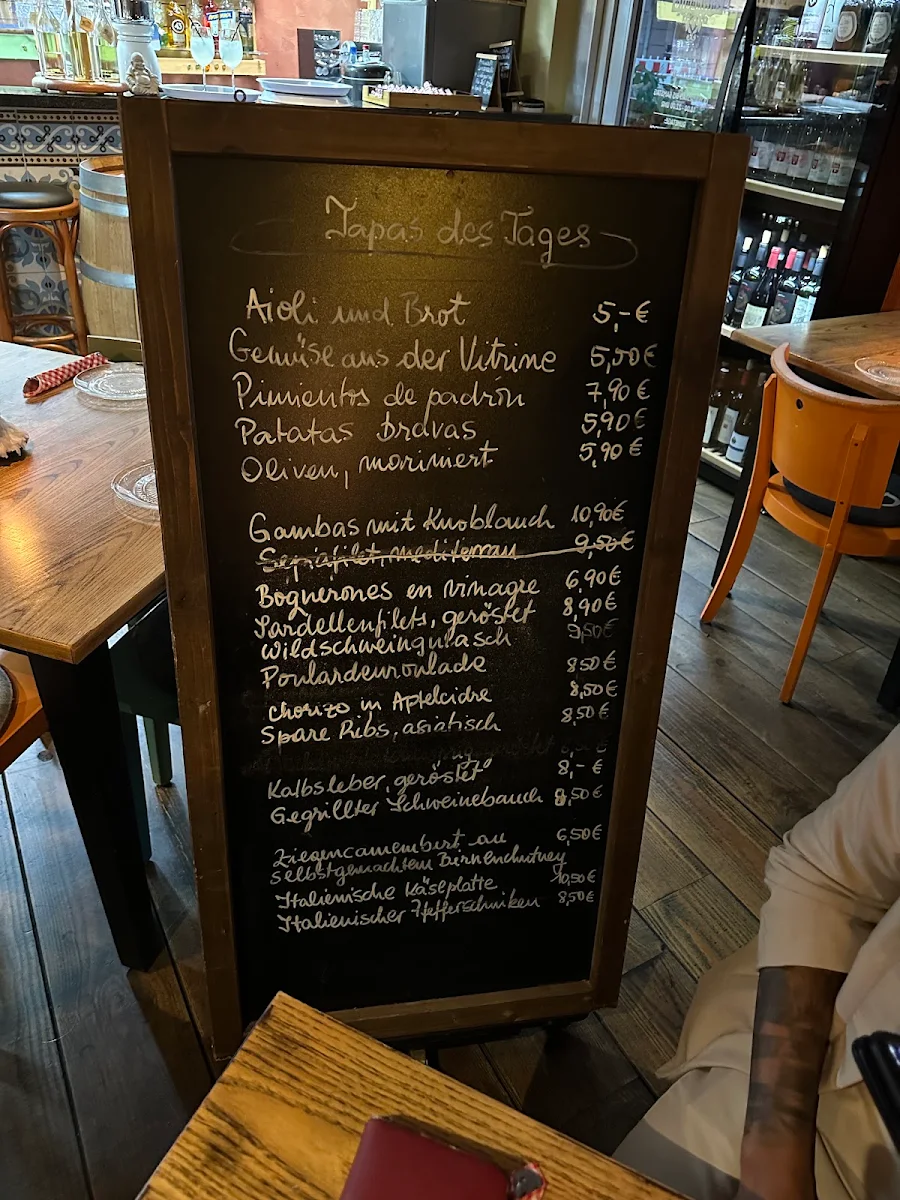 Tapas des Tages
Aioli und Brot 5,-€
Gemüse aus der Vitrine 5,50€
Pimientos de padrón 7,90€
Patatas bravas 5,90€
Oliven, mariniert 5,90€
Gambas mit Knoblauch 10,90€
Sepiafilet, mediterran 9,50€
Boquerones en vinagre 6,90€
Sardellenfilets, geröstet 8,90€
Wildschweingulasch 9,50€
Poulardenroulade 8,50€
Chorizo in Apfelcidre 8,50€
Spare Ribs, asiatisch 8,50€
Kalbsleber, geröstet 8,-€
Gegrillter Schweinebauch 8,50€
Ziegencamembert, an 6,50€
selbstgemachtem Birnenchutney
Italienische Käseplatte 10,50€
Italienischer Pfefferschinken 8,50€